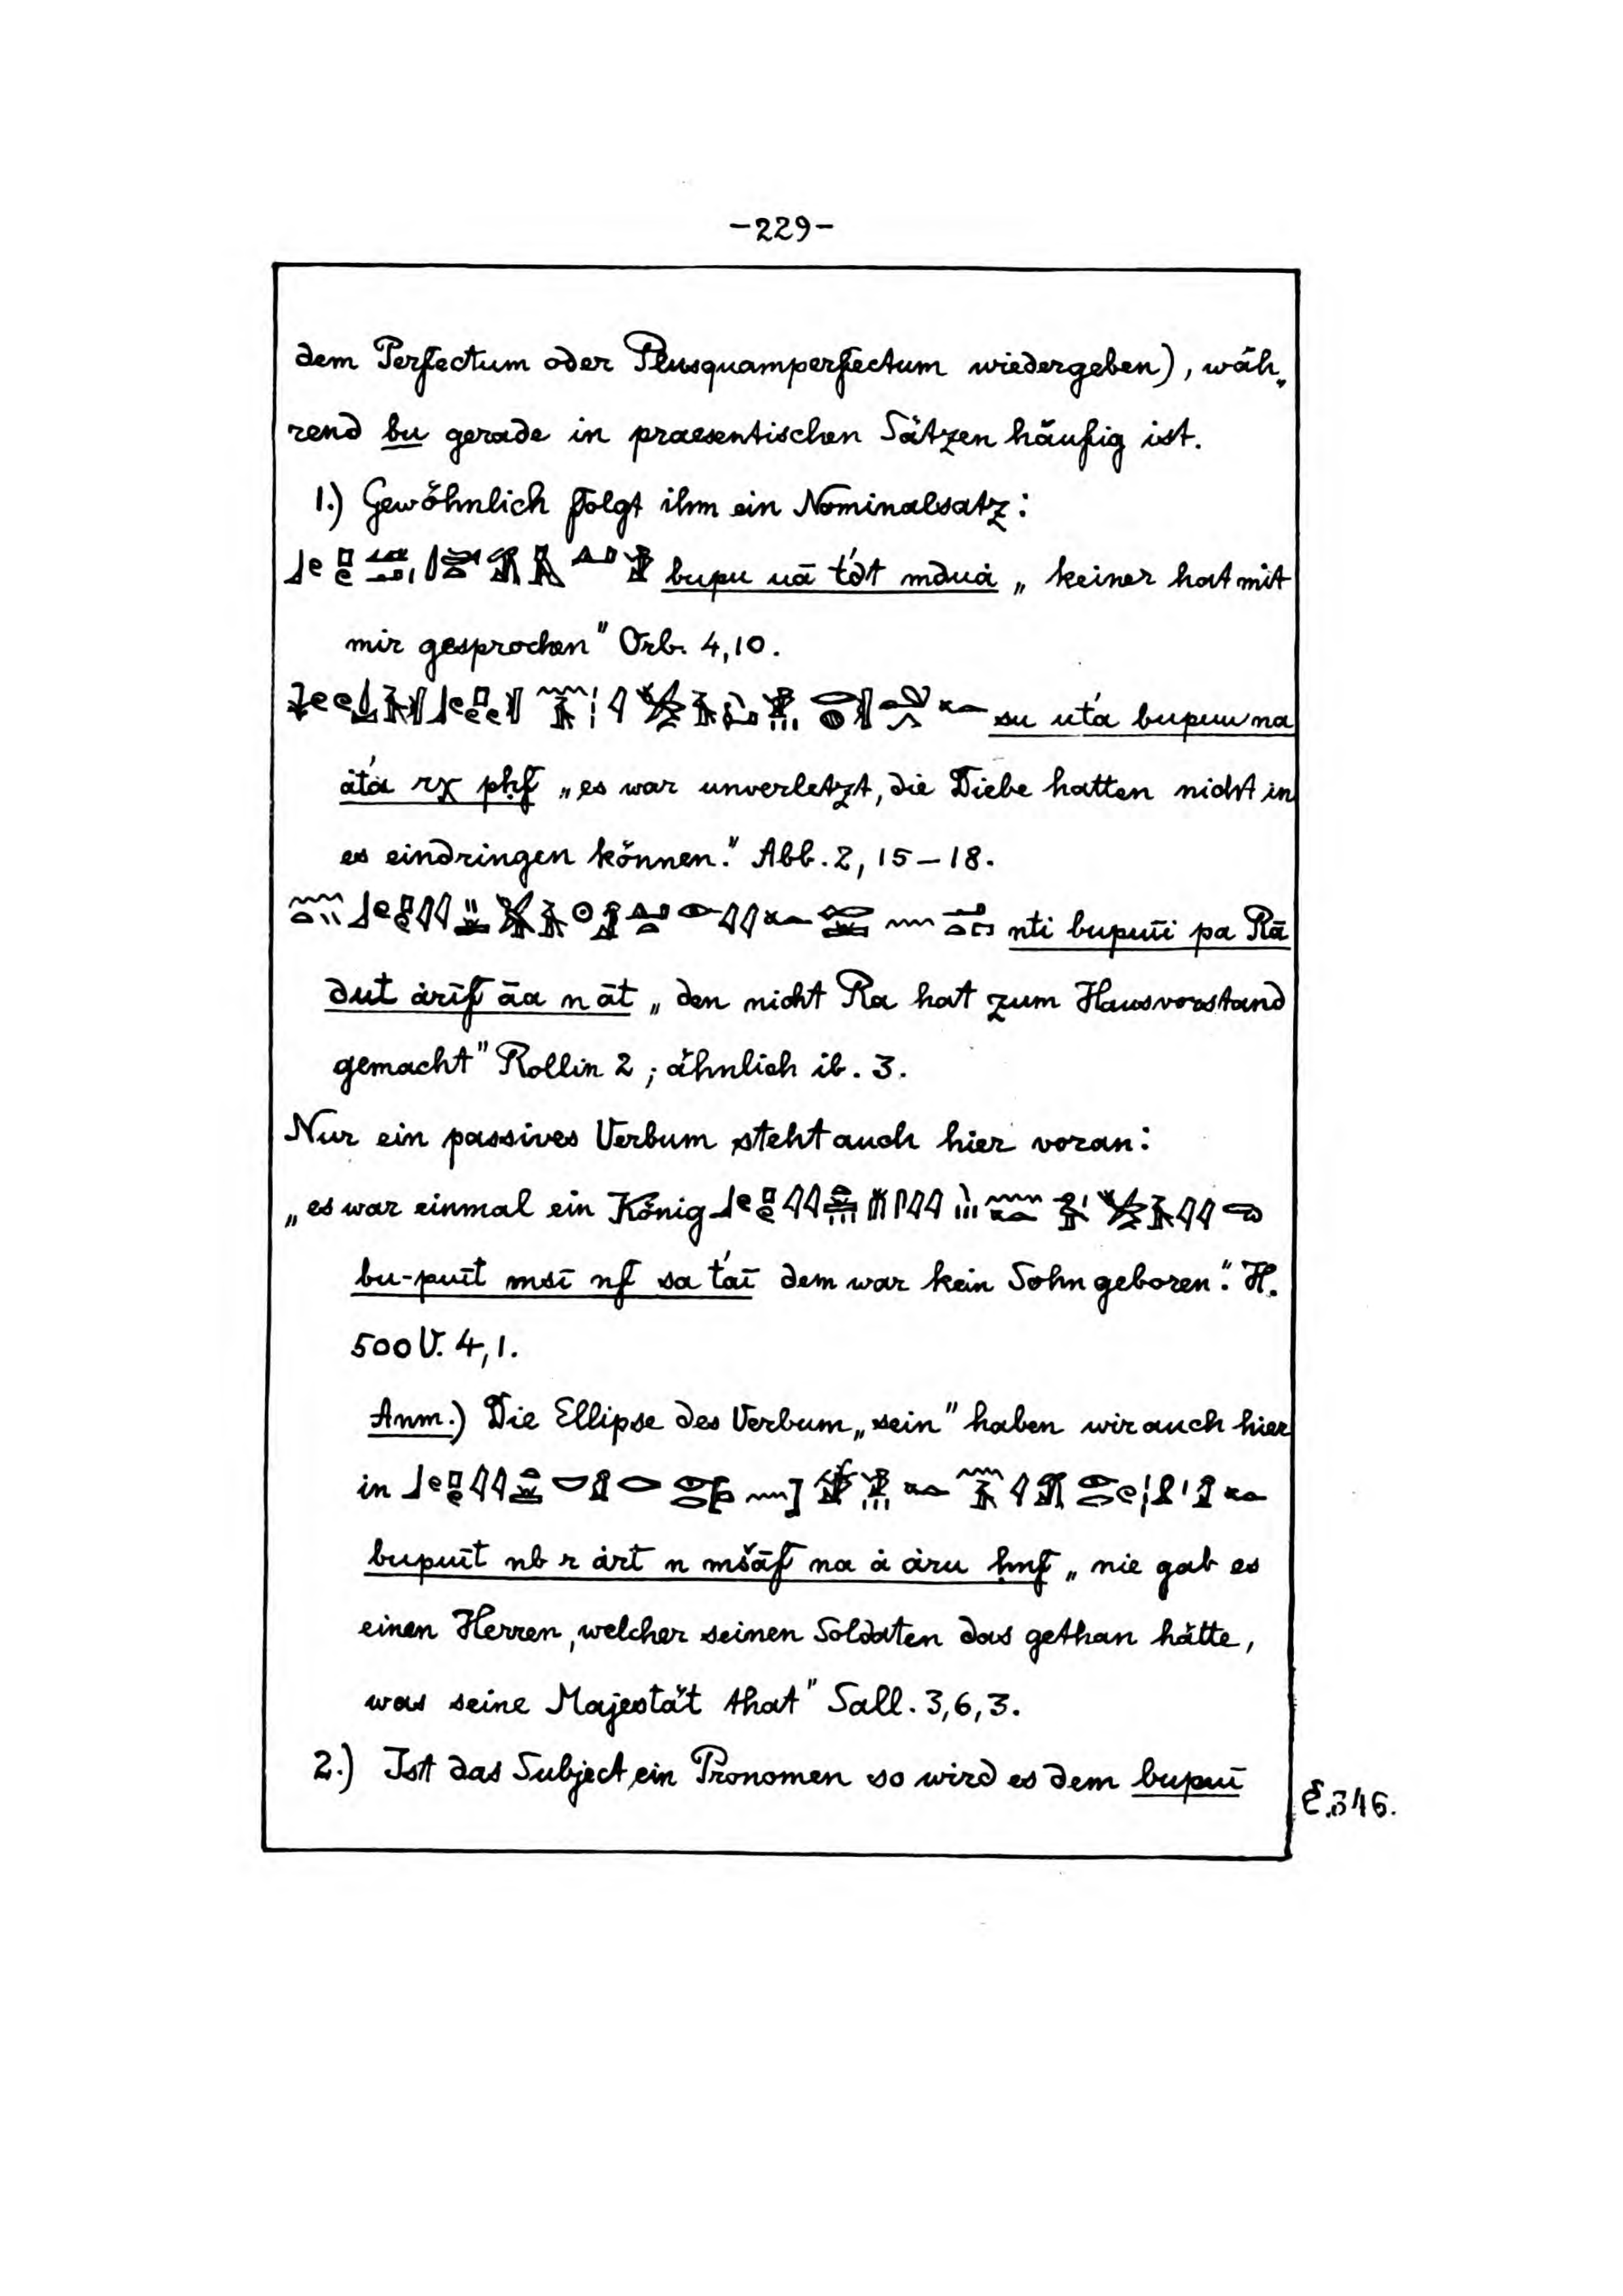 -229-
dem Perfectum oder Plusquamperfectum wiedergeben), wäh„
rend bu gerade in praesentischen Sätzen häufig ist.
1.) Gewöhnlich folgt ihm ein Nominalsatz:
bupu uā t́dt mduȧ „ keiner hat mit
mir gesprochen" Orb. 4,10.
su ut́a bupuu na
ȧt́ȧ rχ pḥf „es war unverletzt, die Diebe hatten nicht in
es eindringen können." Abb. 2, 15-18.
nti bupuī pa Rā
dut ȧrīf āa n āt „ den nicht Ra hat zum Hausvorstand
gemacht" Rollin 2 ; ähnlich ib. 3.
Nur ein passives Verbum steht auch hier voran:
„es war einmal ein König
bu-puīt msī nf sa t́aī dem war kein Sohn geboren." H.
500 V. 4,1.
Anm.) Die Ellipse des Verbum „sein" haben wir auch hier
in
bupuīt nb r ȧrt n mšāf na ȧ ȧru ḥnf „ nie gab es
einen Herren, welcher seinen Soldaten das gethan hätte,
was seine Majestät that" Sall. 3,6,3.
2.) Ist das Subject ein Pronomen so wird es dem bupuī
§.346.